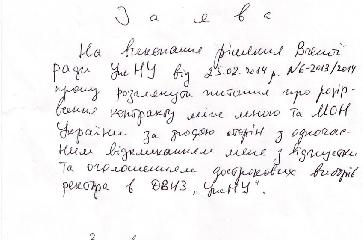 Заява
На виконання рішення Вченої
ради УжНУ від 23.02.2014 р. №6-2013/2014
прошу розглянути питання про розір-
вання контракту між мною та МОН
України за згодою сторін з одночас-
ним відкликанням мене з відпустки
та оголошенням дострокових виборів
ректора в ДВНЗ „УжНУ".